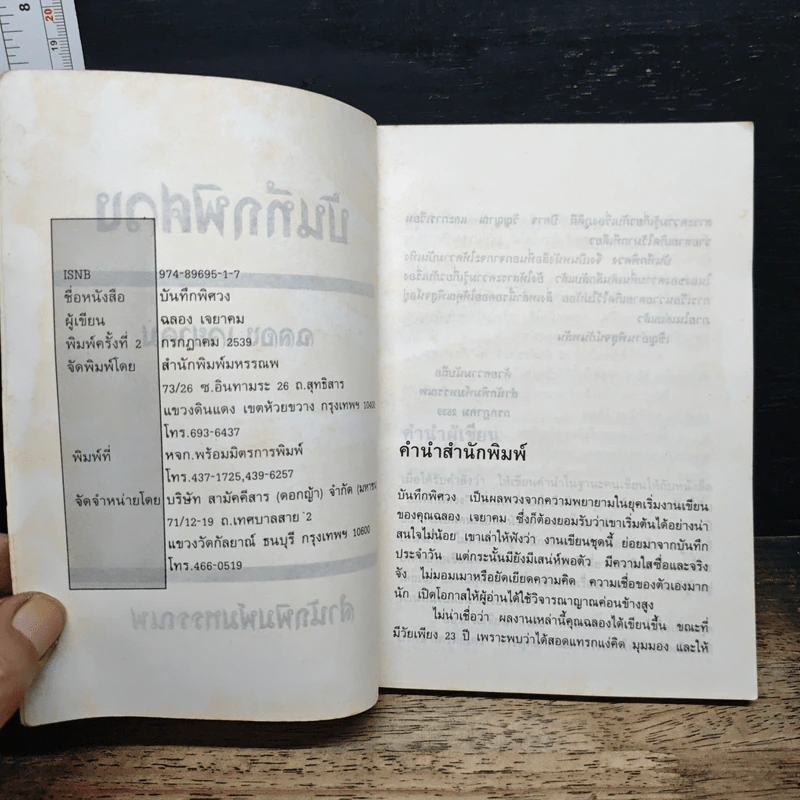 8
20
19
ISNB 974-89695-1-7
ชื่อหนังสือ บันทึกพิศวง
ผู้เขียน ฉลอง เจยาคม
พิมพ์ครั้งที่ 2 กรกฎาคม 2539
จัดพิมพ์โดย สำนักพิมพ์มหรรณพ
73/26 ซ.อินทามระ 26 ถ.สุทธิสาร
แขวงดินแดง เขตห้วยขวาง กรุงเทพฯ 10400
โทร.693-6437
พิมพ์ที่ หจก.พร้อมมิตรการพิมพ์
โทร.437-1725,439-6257
จัดจำหน่ายโดย บริษัท สามัคคีสาร (ดอกญ้า) จำกัด (มหาชน
71/12-19 ถ.เทศบาลสาย 2
แขวงวัดกัลยาณ์ ธนบุรี กรุงเทพฯ 10600
โทร.466-0519
คำนำสำนักพิมพ์
บันทึกพิศวง เป็นผลพวงจากความพยายามในยุคเริ่มงานเขียน
ของคุณฉลอง เจยาคม ซึ่งก็ต้องยอมรับว่าเขาเริ่มต้นได้อย่างน่า
สนใจไม่น้อย เขาเล่าให้ฟังว่า งานเขียนชุดนี้ ย่อยมาจากบันทึก
ประจำวัน แต่กระนั้นมียังมีเสน่ห์พอตัว มีความใสซื่อและจริง
จัง ไม่มอมเมาหรือยัดเยียดความคิด ความเชื่อของตัวเองมาก
นัก เปิดโอกาสให้ผู้อ่านได้ใช้วิจารณาญาณค่อนข้างสูง
ไม่น่าเชื่อว่า ผลงานเหล่านี้คุณฉลองได้เขียนขึ้น ขณะที่
มีวัยเพียง 23 ปี เพราะพบว่าได้สอดแทรกแง่คิด มุมมอง และให้